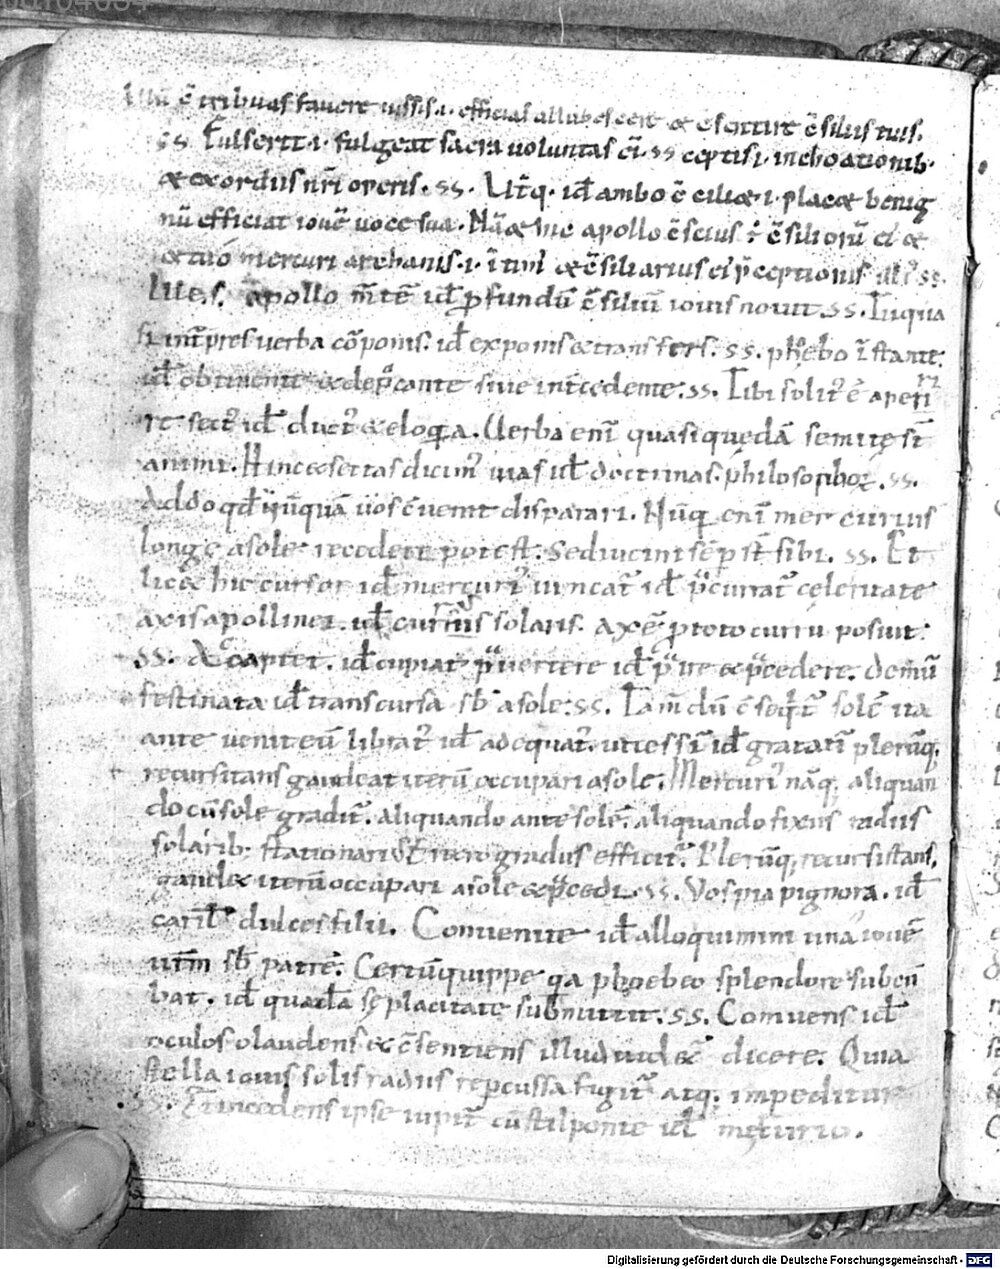 ẽ tribuas favere iussis .i. efficias allubescere & c̄sentire c̄siliis tuis.
ss. Fulserit .i. fulgeat sacra voluntas ei. ss ceptis .i. inchoationib.
& exordiis nr̄i operis. ss. Ut̄q. id ambo c̄ ciliæ .i. place& benig
nū efficiat iovē voce sua. Nā & hic apollo c̄scius ē c̄siliorū ei &
& tuō mercuri archanis .i. ītim̄ & c̄siliarius ei p̄ceptionis ss.
lites. apollo m̄tē id p̄fundū c̄siliū iovis novit. ss. Tu qua
si int̄pres verba cōponis. id exponis & transfers. ss. phębo īstante.
id obtinente & dep̄cante sive int̄cedente. ss. Tibi solit ē aperi
re sect id duct & eloq̄a. Verba enī quasi quedā semite st̄
animi. Hinc & sectas dicim vias id doctrinas philosophoꝝ. ss.
Addo qd nūquā vos c̄venit disparari. Nūq enī mercurius
longe a sole recedere potest. Sed vicini sēp st̄ sibi. ss. Et
lic& hic cursor id mercuri vincat id p̄currat celeritate
axis apollinei. id currus solaris. axē p̄ toto curru posuit.
ss. & captet. id cupiat p̄vertere id p̄ire & p̄cedere. demū
festinata id transcursa sb̄ a sole. ss. Tam̄ dū c̄seq̄t solē ita
ante venit eū librat id adequat. ut cessī id gratatī plerūq.
recursitans gaudeat iterū occupari a sole. Mercuri nāq, aliquan
do cū sole gradit. aliquando ante solē. aliquando fixus radiis
solarib; stationari & retrogradus efficit. Plerūq, recursitans,
gaud& iterū occupari a sole & p̄cedi. ss. Vos pia pignora. id
carī dulces filii. Convenite id alloquimini una iovē
vr̄m sb̄ patrē. Certū quippe qa phoebeo splendore suben
bat. id quadā se placitate submittit. ss. Conivens id
oculos claudens & c̄sentiens illud vid& dicere. Quia
stella iovis solis radiis rep̄cussa fugit atq, impeditur
ss. Et incedens ipse iupit̄ cū stilponte id mercurio.
Digitalisierung gefördert durch die Deutsche Forschungsgemeinschaft - DFG